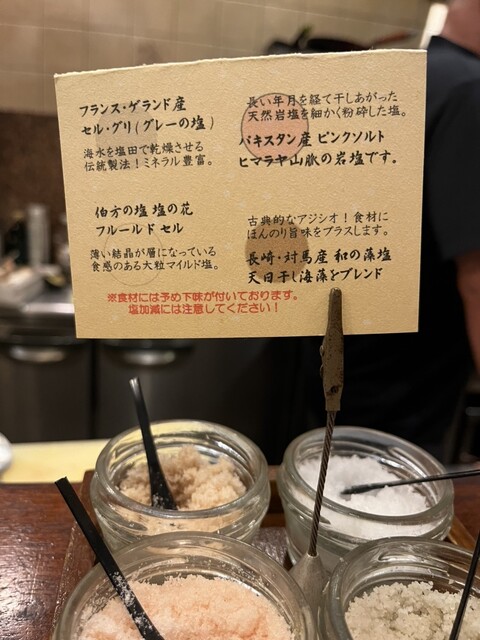 フランス・ゲランド産
セル・グリ(グレーの塩)
海水を塩田で乾燥させる
伝統製法！ミネラル豊富。
伯方の塩 塩の花
フルールド セル
薄い結晶が層になっている
食感のある大粒マイルド塩。
長い年月を経て干しあがった
天然岩塩を細かく粉砕した塩。
パキスタン産 ピンクソルト
ヒマラヤ山脈の岩塩です。
古典的なアジシオ！食材に
ほんのり旨味をプラスします。
長崎・対馬産 和の藻塩
天日干し海藻をブレンド
※食材には予め下味が付いております。
塩加減には注意してください！